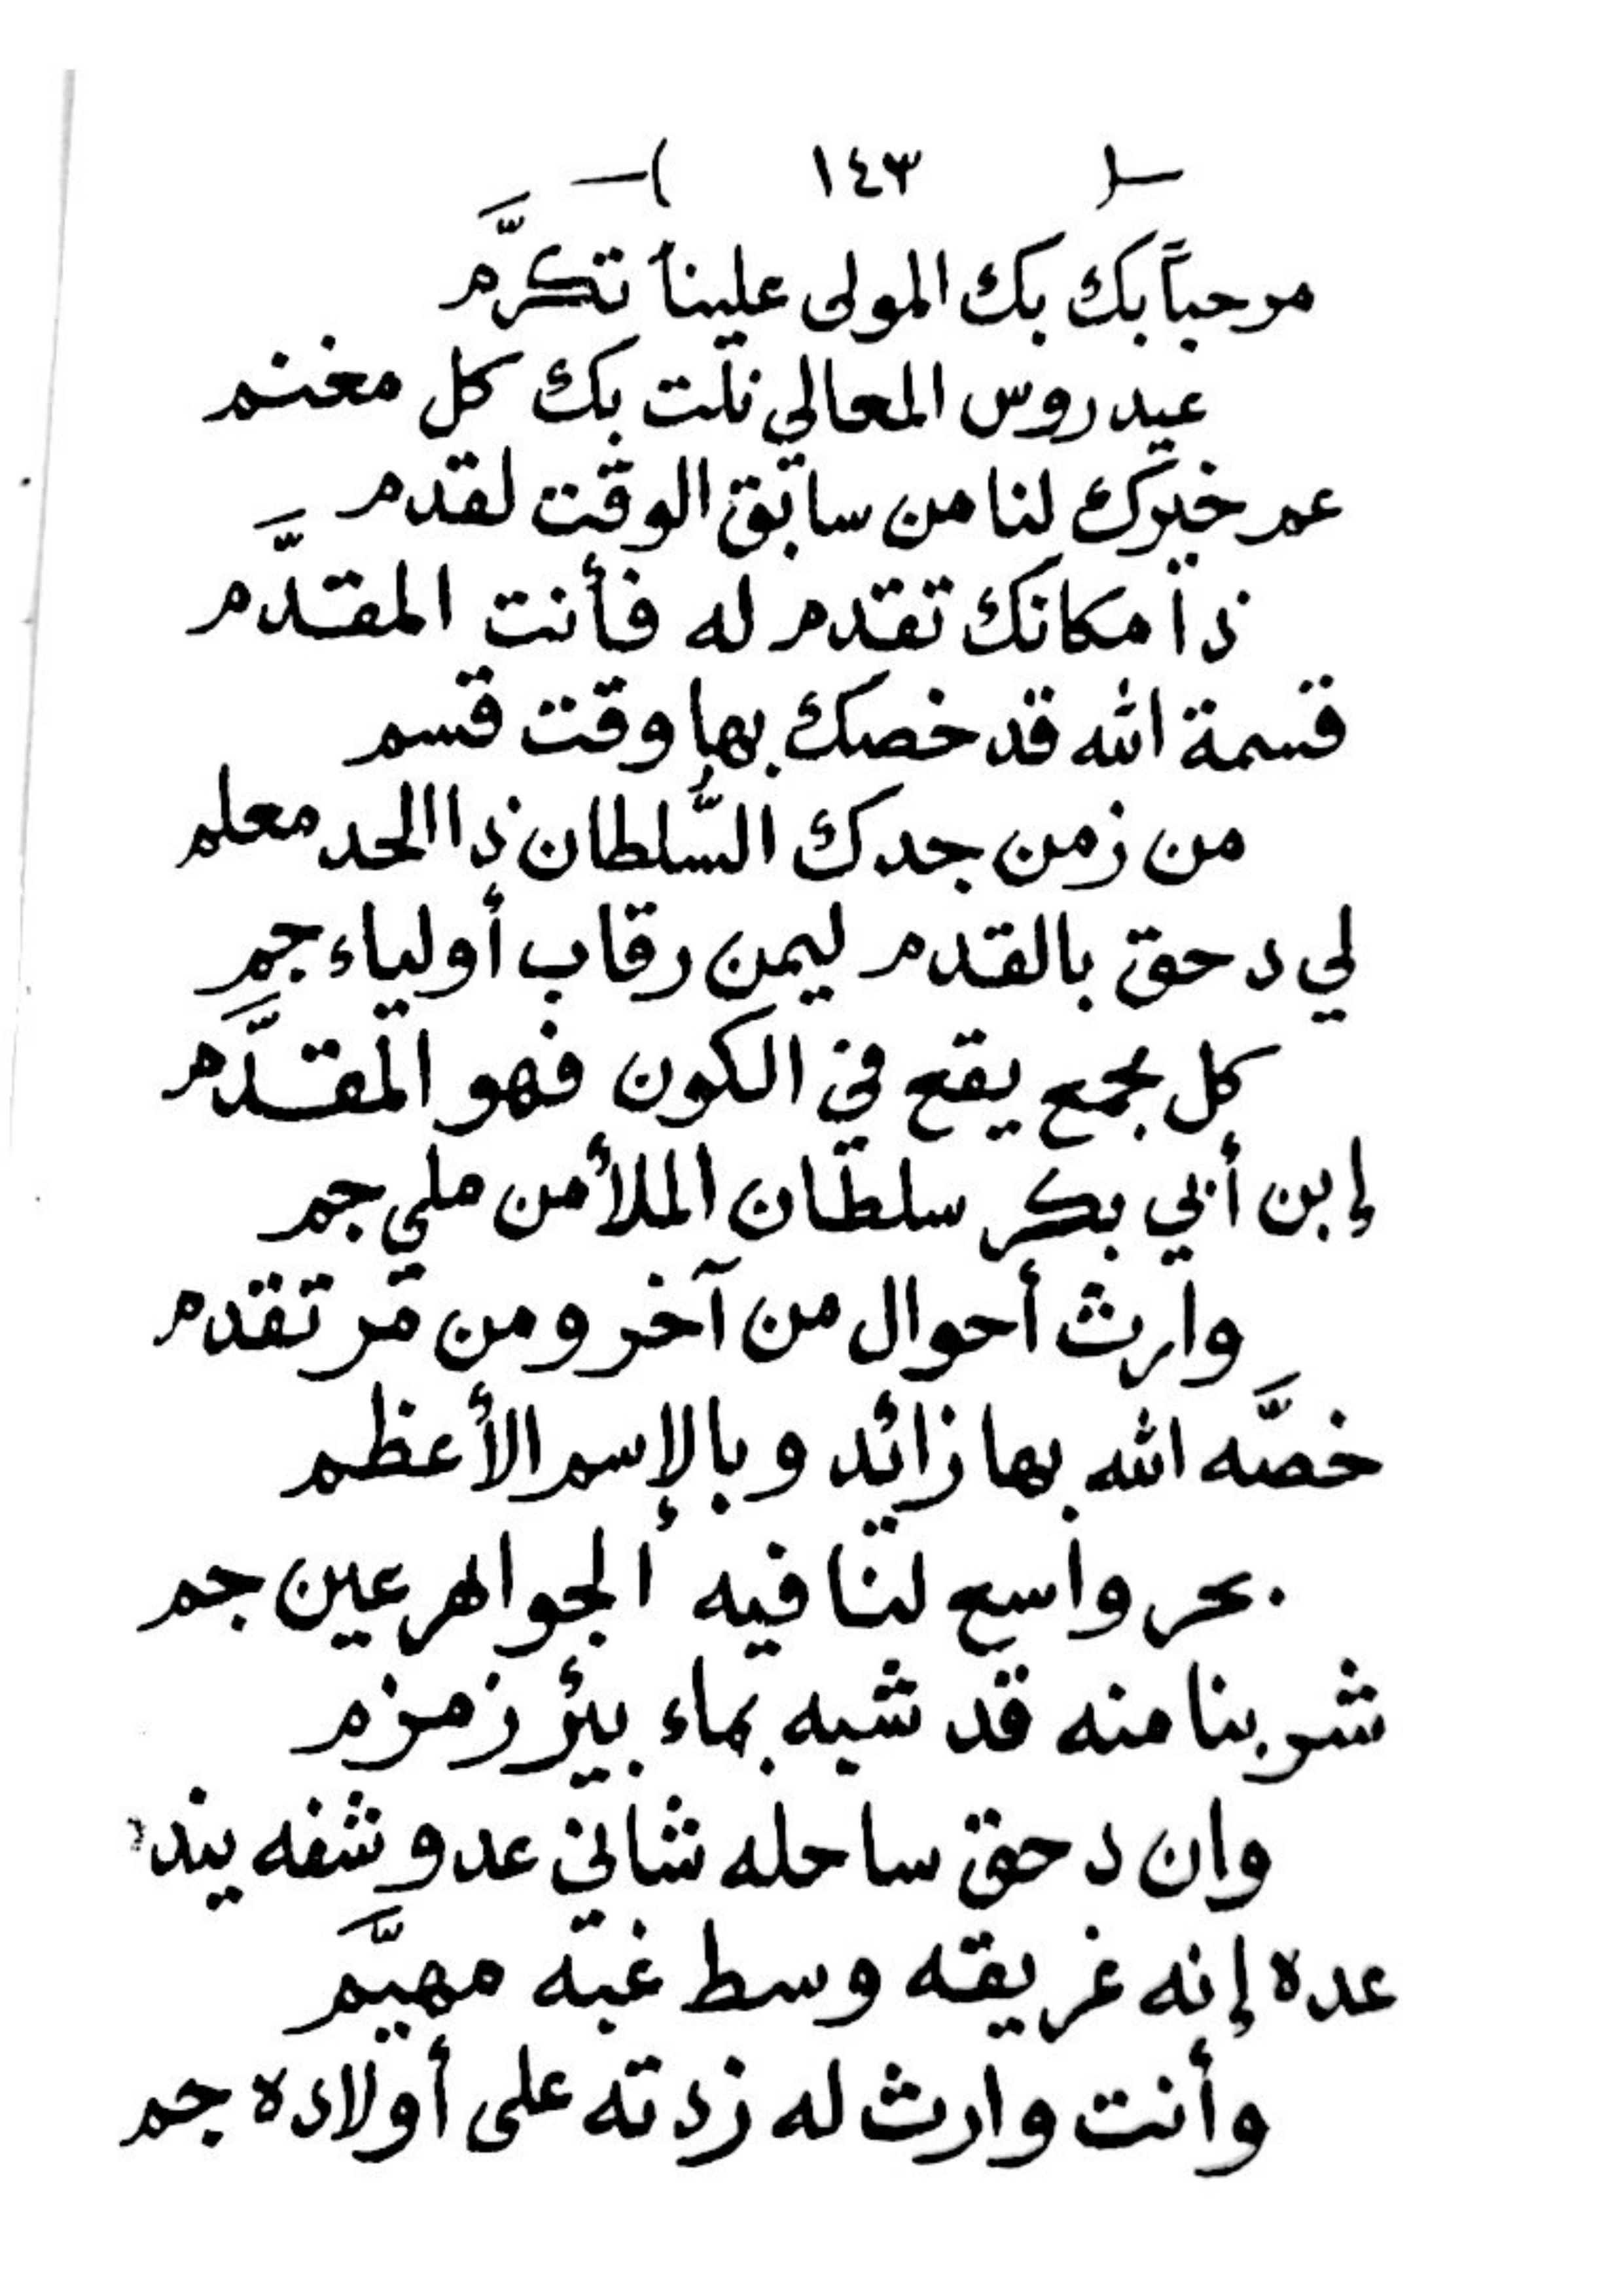 ١٤٣
مرحباً بك بك المولى علينا تكرَّم
عيدروس المعالي نلت بك كل مغنم
عم خيرك لنا من سابق الوقت لقدم
ذا مكانك تقدم له فأنت المقدَّم
قسمة الله قد خصك بها وقت قسم
من زمن جدك السُّلطان ذا الحد معلم
لي دحق بالقدم ليمن رقاب أولياء جم
كل مجمع يقع في الكون فهو المقدَّم
إبن أبي بكر سلطان الملأ من ملي جم
وارث أحوال من آخر ومن قر تقدم
خصَّه الله بها زائد وبالإسم الأعظم
بحر واسع لنا فيه الجواهر عين جم
شربنا منه قد شبه بماء بئر زمزم
وان دحق ساحله شاني عدو شفه
عده إنه غريقه وسط غبه مهيَّم
وأنت وارث له زدته على أولاده جم